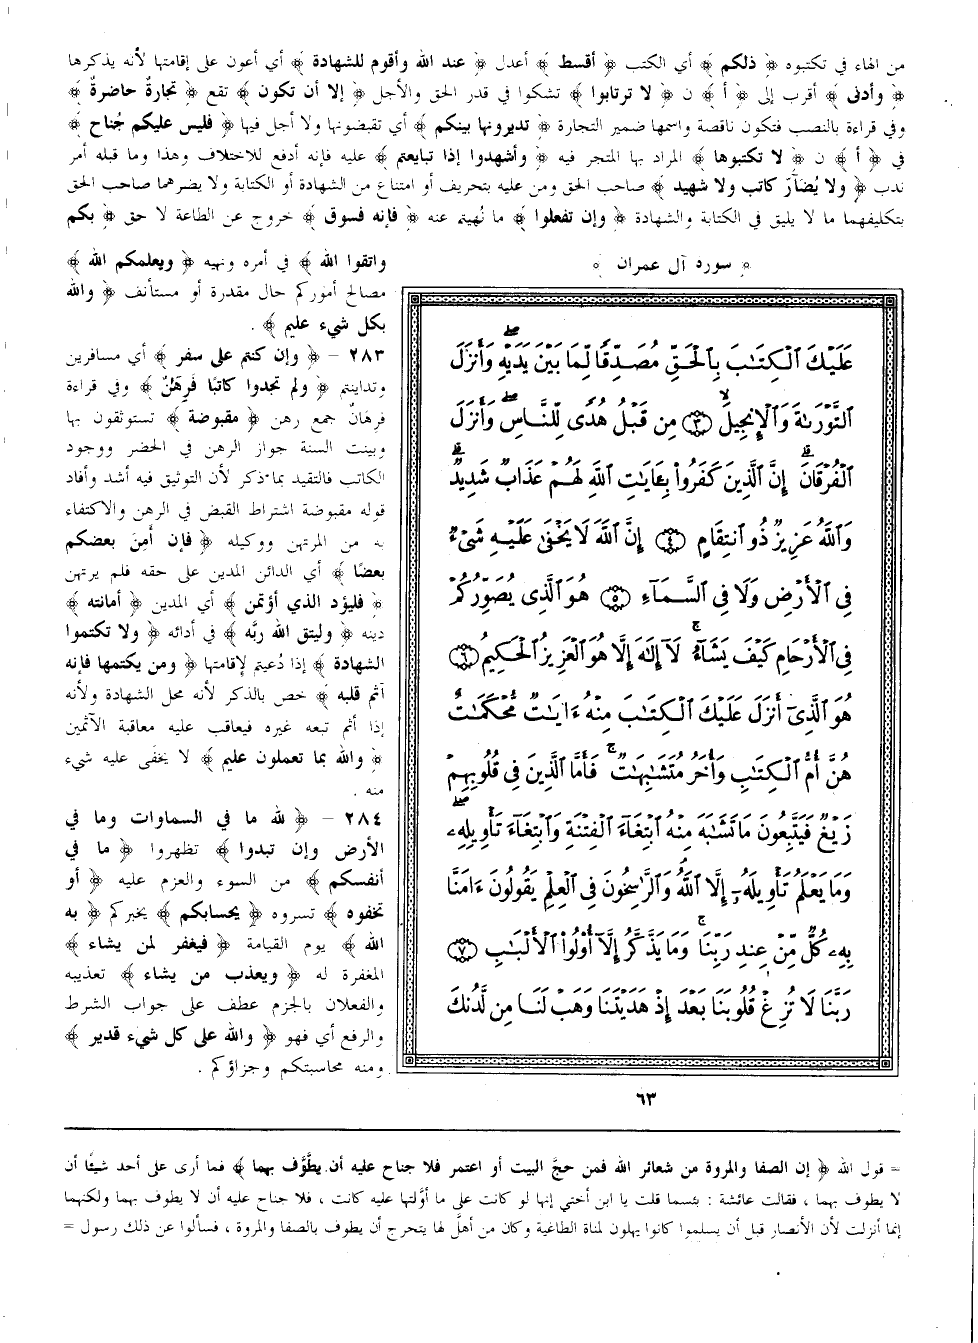 من الهاء في تكتبوه ﴿ ذلكم ﴾ أي الكتب ﴿ أقسط ﴾ أعدل ﴿ عند الله وأقوم للشهادة ﴾ أي أعون على إقامتها لأنه يذكرها
﴿ وأدنى ﴾ أقرب إلى ﴿ أ ﴾ ن ﴿ لا ترتابوا ﴾ تشكوا في قدر الحق والأجل ﴿ إلا أن تكون ﴾ تقع ﴿ تجارةٌ حاضرةٌ ﴾
وفي قراءة بالنصب فتكون ناقصة واسمها ضمير التجارة ﴿ تديرونها بينكم ﴾ أي تقبضونها ولا أجل فيها ﴿ فليس عليكم جُناح ﴾
في ﴿ أ ﴾ ن ﴿ لا تكتبوها ﴾ المراد بها المتجر فيه ﴿ وأشهدوا إذا تبايعتم ﴾ عليه فإنه أدفع للاختلاف وهذا وما قبله أمر
ندب ﴿ ولا يُضارَّ كاتب ولا شهيد ﴾ صاحب الحق ومن عليه بتحريف أو امتناع من الشهادة أو الكتابة ولا يضرهما صاحب الحق
بتكليفهما ما لا يليق في الكتابة والشهادة ﴿ وإن تفعلوا ﴾ ما نُهيتم عنه ﴿ فإنه فسوق ﴾ خروج عن الطاعة لا حق ﴿ بكم
واتقوا الله ﴾ في أمره ونهيه ﴿ ويعلمكم الله ﴾
مصالح أموركم حال مقدرة أو مستأنف ﴿ والله
بكل شيء عليم ﴾ .
٢٨٣ – ﴿ وإن كنتم على سفر ﴾ أي مسافرين
وتداينتم ﴿ ولم تجدوا كاتبًا فَرِهَنٌ ﴾ وفي قراءة
فرهانٌ جمع رهن ﴿ مقبوضة ﴾ تستوثقون بها
وبينت السنة جواز الرهن في الحضر ووجود
الكاتب فالتقيد بما ذكر لأن التوثيق فيه أشد وأفاد
قوله مقبوضة اشتراط القبض في الرهن والاكتفاء
به من المرتهن ووكيله ﴿ فإن أمِنَ بعضكم
بعضًا ﴾ أي الدائن المدين على حقه فلم يرتهن
﴿ فليؤد الذي أؤتمن ﴾ أي المدين ﴿ أمانته ﴾
دينه ﴿ وليتق الله ربَّه ﴾ في أدائه ﴿ ولا تكتموا
الشهادة ﴾ إذا دُعيتم لإقامتها ﴿ ومن يكتمها فإنه
آثم قلبه ﴾ خص بالذكر لأنه محل الشهادة ولأنه
إذا أثم تبعه غيره فيعاقب عليه معاقبة الآثمين
﴿ والله بما تعملون عليم ﴾ لا يخفى عليه شيء
منه .
٢٨٤ – ﴿ لله ما في السماوات وما في
الأرض وإن تبدوا ﴾ تظهروا ﴿ ما في
أنفسكم ﴾ من السوء والعزم عليه ﴿ أو
تخفوه ﴾ تسروه ﴿ يحاسبكم ﴾ يخبركم ﴿ به
الله ﴾ يوم القيامة ﴿ فيغفر لمن يشاء ﴾
المغفرة له ﴿ ويعذب من يشاء ﴾ تعذيبه
والفعلان بالجزم عطف على جواب الشرط
والرفع أي فهو ﴿ والله على كل شيء قدير ﴾
ومنه محاسبتكم وجزاؤكم .
﴿ سورة آل عمران ﴾
عَلَيْكَ ٱلْكِتَٰبَ بِٱلْحَقِّ مُصَدِّقًا لِّمَا بَيْنَ يَدَيْهِ ۖ وَأَنزَلَ
ٱلتَّوْرَىٰةَ وَٱلْإِنجِيلَ ۙ ﴿٣﴾ مِن قَبْلُ هُدًى لِّلنَّاسِ ۖ وَأَنزَلَ
ٱلْفُرْقَانَ ۗ إِنَّ ٱلَّذِينَ كَفَرُوا۟ بِـَٔايَٰتِ ٱللَّهِ لَهُمْ عَذَابٌ شَدِيدٌ ۗ
وَٱللَّهُ عَزِيزٌ ذُو ٱنتِقَامٍ ﴿٤﴾ إِنَّ ٱللَّهَ لَا يَخْفَىٰ عَلَيْهِ شَىْءٌ
فِى ٱلْأَرْضِ وَلَا فِى ٱلسَّمَآءِ ﴿٥﴾ هُوَ ٱلَّذِى يُصَوِّرُكُمْ
فِى ٱلْأَرْحَامِ كَيْفَ يَشَآءُ ۚ لَآ إِلَٰهَ إِلَّا هُوَ ٱلْعَزِيزُ ٱلْحَكِيمُ ﴿٦﴾
هُوَ ٱلَّذِىٓ أَنزَلَ عَلَيْكَ ٱلْكِتَٰبَ مِنْهُ ءَايَٰتٌ مُّحْكَمَٰتٌ
هُنَّ أُمُّ ٱلْكِتَٰبِ وَأُخَرُ مُتَشَٰبِهَٰتٌ ۚ فَأَمَّا ٱلَّذِينَ فِى قُلُوبِهِمْ
زَيْغٌ فَيَتَّبِعُونَ مَا تَشَٰبَهَ مِنْهُ ٱبْتِغَآءَ ٱلْفِتْنَةِ وَٱبْتِغَآءَ تَأْوِيلِهِۦ ۖ
وَمَا يَعْلَمُ تَأْوِيلَهُۥٓ إِلَّا ٱللَّهُ وَٱلرَّٰسِخُونَ فِى ٱلْعِلْمِ يَقُولُونَ ءَامَنَّا
بِهِۦ كُلٌّ مِّنْ عِندِ رَبِّنَا ۚ وَمَا يَذَّكَّرُ إِلَّآ أُو۟لُوا۟ ٱلْأَلْبَٰبِ ﴿٧﴾
رَبَّنَا لَا تُزِغْ قُلُوبَنَا بَعْدَ إِذْ هَدَيْتَنَا وَهَبْ لَنَا مِن لَّدُنكَ
٦٣
= قول الله ﴿ إن الصفا والمروة من شعائر الله فمن حجَّ البيت أو اعتمر فلا جناح عليه أن يطَّوَّف بهما ﴾ فما أرى على أحد شيئًا أن
لا يطوف بهما ، فقالت عائشة : بئسما قلت يا ابن أختي إنها لو كانت على ما أوَّلتها عليه كانت ، فلا جناح عليه أن لا يطوف بهما ولكنهما
إنما أنزلت لأن الأنصار قبل أن يسلموا كانوا يهلون لمناة الطاغية وكان من أهلَّ لها يتحرج أن يطوف بالصفا والمروة ، فسألوا عن ذلك رسول =